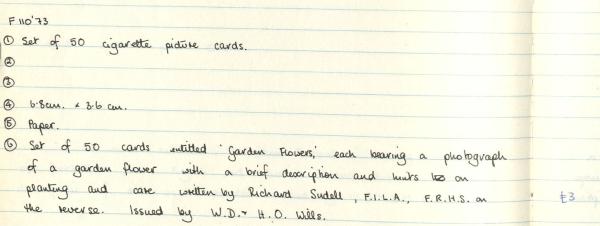 F 110'73
① Set of 50 cigarette picture cards.
②
③
④ 6.8cm. x 3.6 cm.
⑤ Paper.
⑥ Set of 50 cards entitled 'Garden Flowers,' each bearing a photograph
of a garden flower with a brief description and hints on
planting and care written by Richard Sudell, F.I.L.A., F.R.H.S. on £3
the reverse. Issued by W.D. & H.O. Wills.